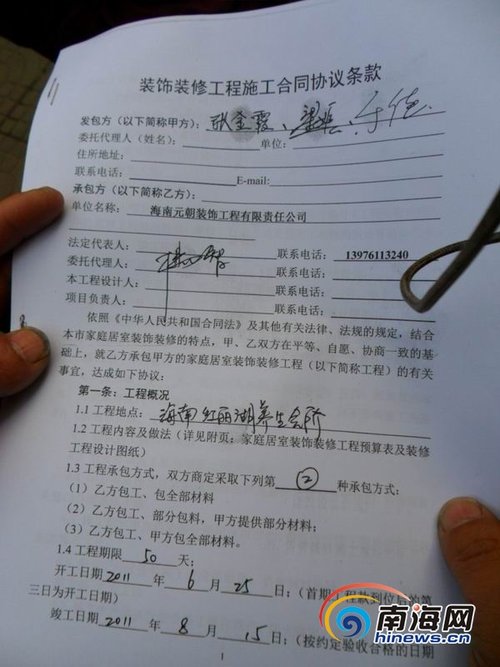 装饰装修工程施工合同协议条款
发包方（以下简称甲方）：张金霞、
委托代理人（姓名）： 单位：
住所地址：
联系电话： E-mail:
承包方（以下简称乙方）：
单位名称： 海南元朝装饰工程有限责任公司
法定代表人： 联系电话： 13976113240
委托代理人： 联系电话：
本工程设计人： 联系电话：
项目负责人： 联系电话：
依照《中华人民共和国合同法》及其他有关法律、法规的规定，结合
本市家庭居室装饰装修的特点，甲、乙双方在平等、自愿、协商一致的基
础上，就乙方承包甲方的家庭居室装饰装修工程（以下简称工程）的有关
事宜，达成如下协议：
第一条：工程概况
1.1 工程地点：海南红丽湖养生会所
1.2 工程内容及做法（详见附页：家庭居室装饰装修工程预算表及装修
工程设计图纸）
1.3 工程承包方式，双方商定采取下列第 ② 种承包方式：
（1）乙方包工、包全部材料
（2）乙方包工、部分包料，甲方提供部分材料；
（3）乙方包工、甲方包全部材料。
1.4 工程期限 50 天；
开工日期 2011 年 6 月 25 日；（首期工程款到位后的第
三日为开工日期）
竣工日期 2011 年 8 月 15 日；（按约定验收合格的日期
1
南海网
hinews.cn